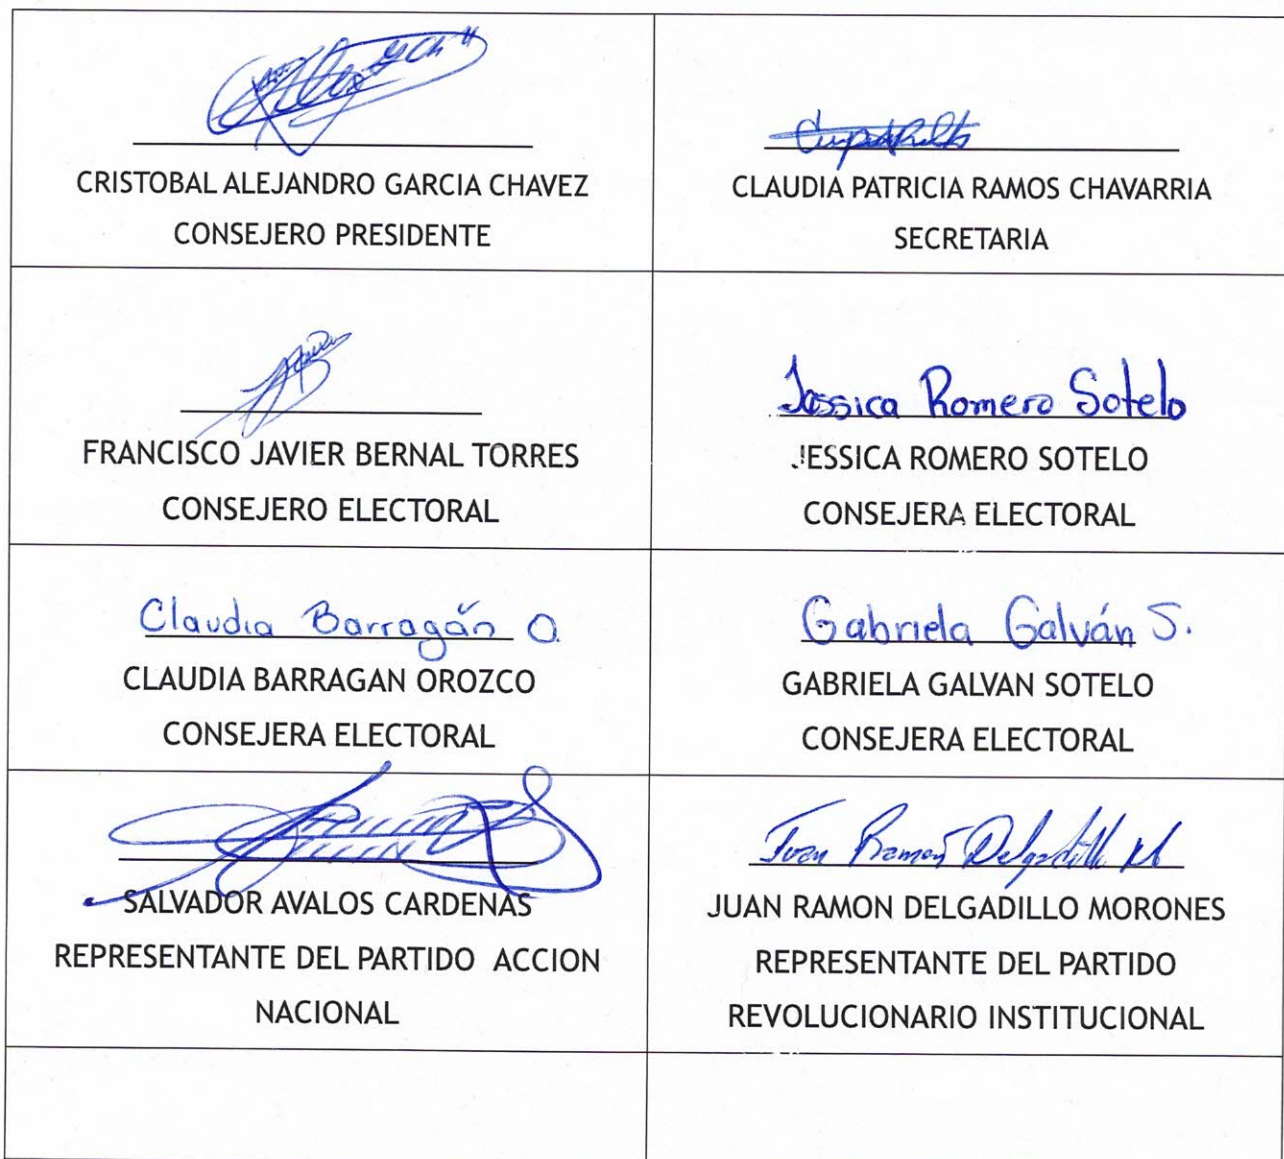 CRISTOBAL ALEJANDRO GARCIA CHAVEZ
CONSEJERO PRESIDENTE
CLAUDIA PATRICIA RAMOS CHAVARRIA
SECRETARIA
FRANCISCO JAVIER BERNAL TORRES
CONSEJERO ELECTORAL
Jessica Romero Sotelo
JESSICA ROMERO SOTELO
CONSEJERA ELECTORAL
Claudia Barragán O.
CLAUDIA BARRAGAN OROZCO
CONSEJERA ELECTORAL
Gabriela Galván S.
GABRIELA GALVAN SOTELO
CONSEJERA ELECTORAL
SALVADOR AVALOS CARDENAS
REPRESENTANTE DEL PARTIDO ACCION
NACIONAL
Juan Ramon Delgadillo M
JUAN RAMON DELGADILLO MORONES
REPRESENTANTE DEL PARTIDO
REVOLUCIONARIO INSTITUCIONAL